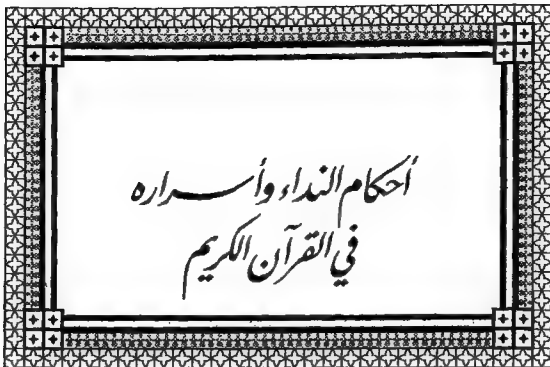 أحكام النداء وأسراره
في القرآن الكريم